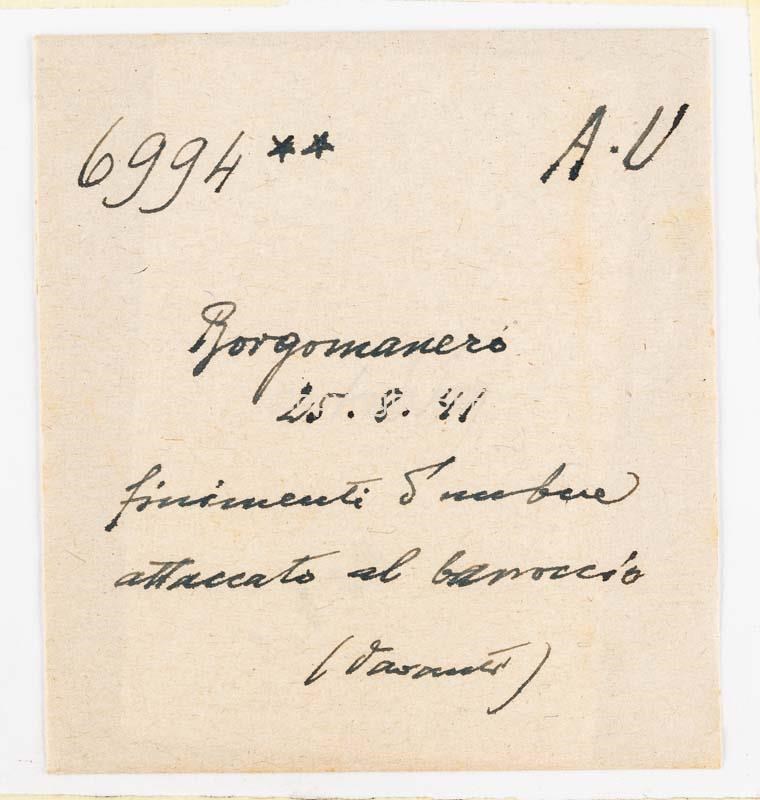 6994 ** A·V
Borgomanero
25.8.41
finimenti d'un bue
attaccato al barroccio
(davanti)